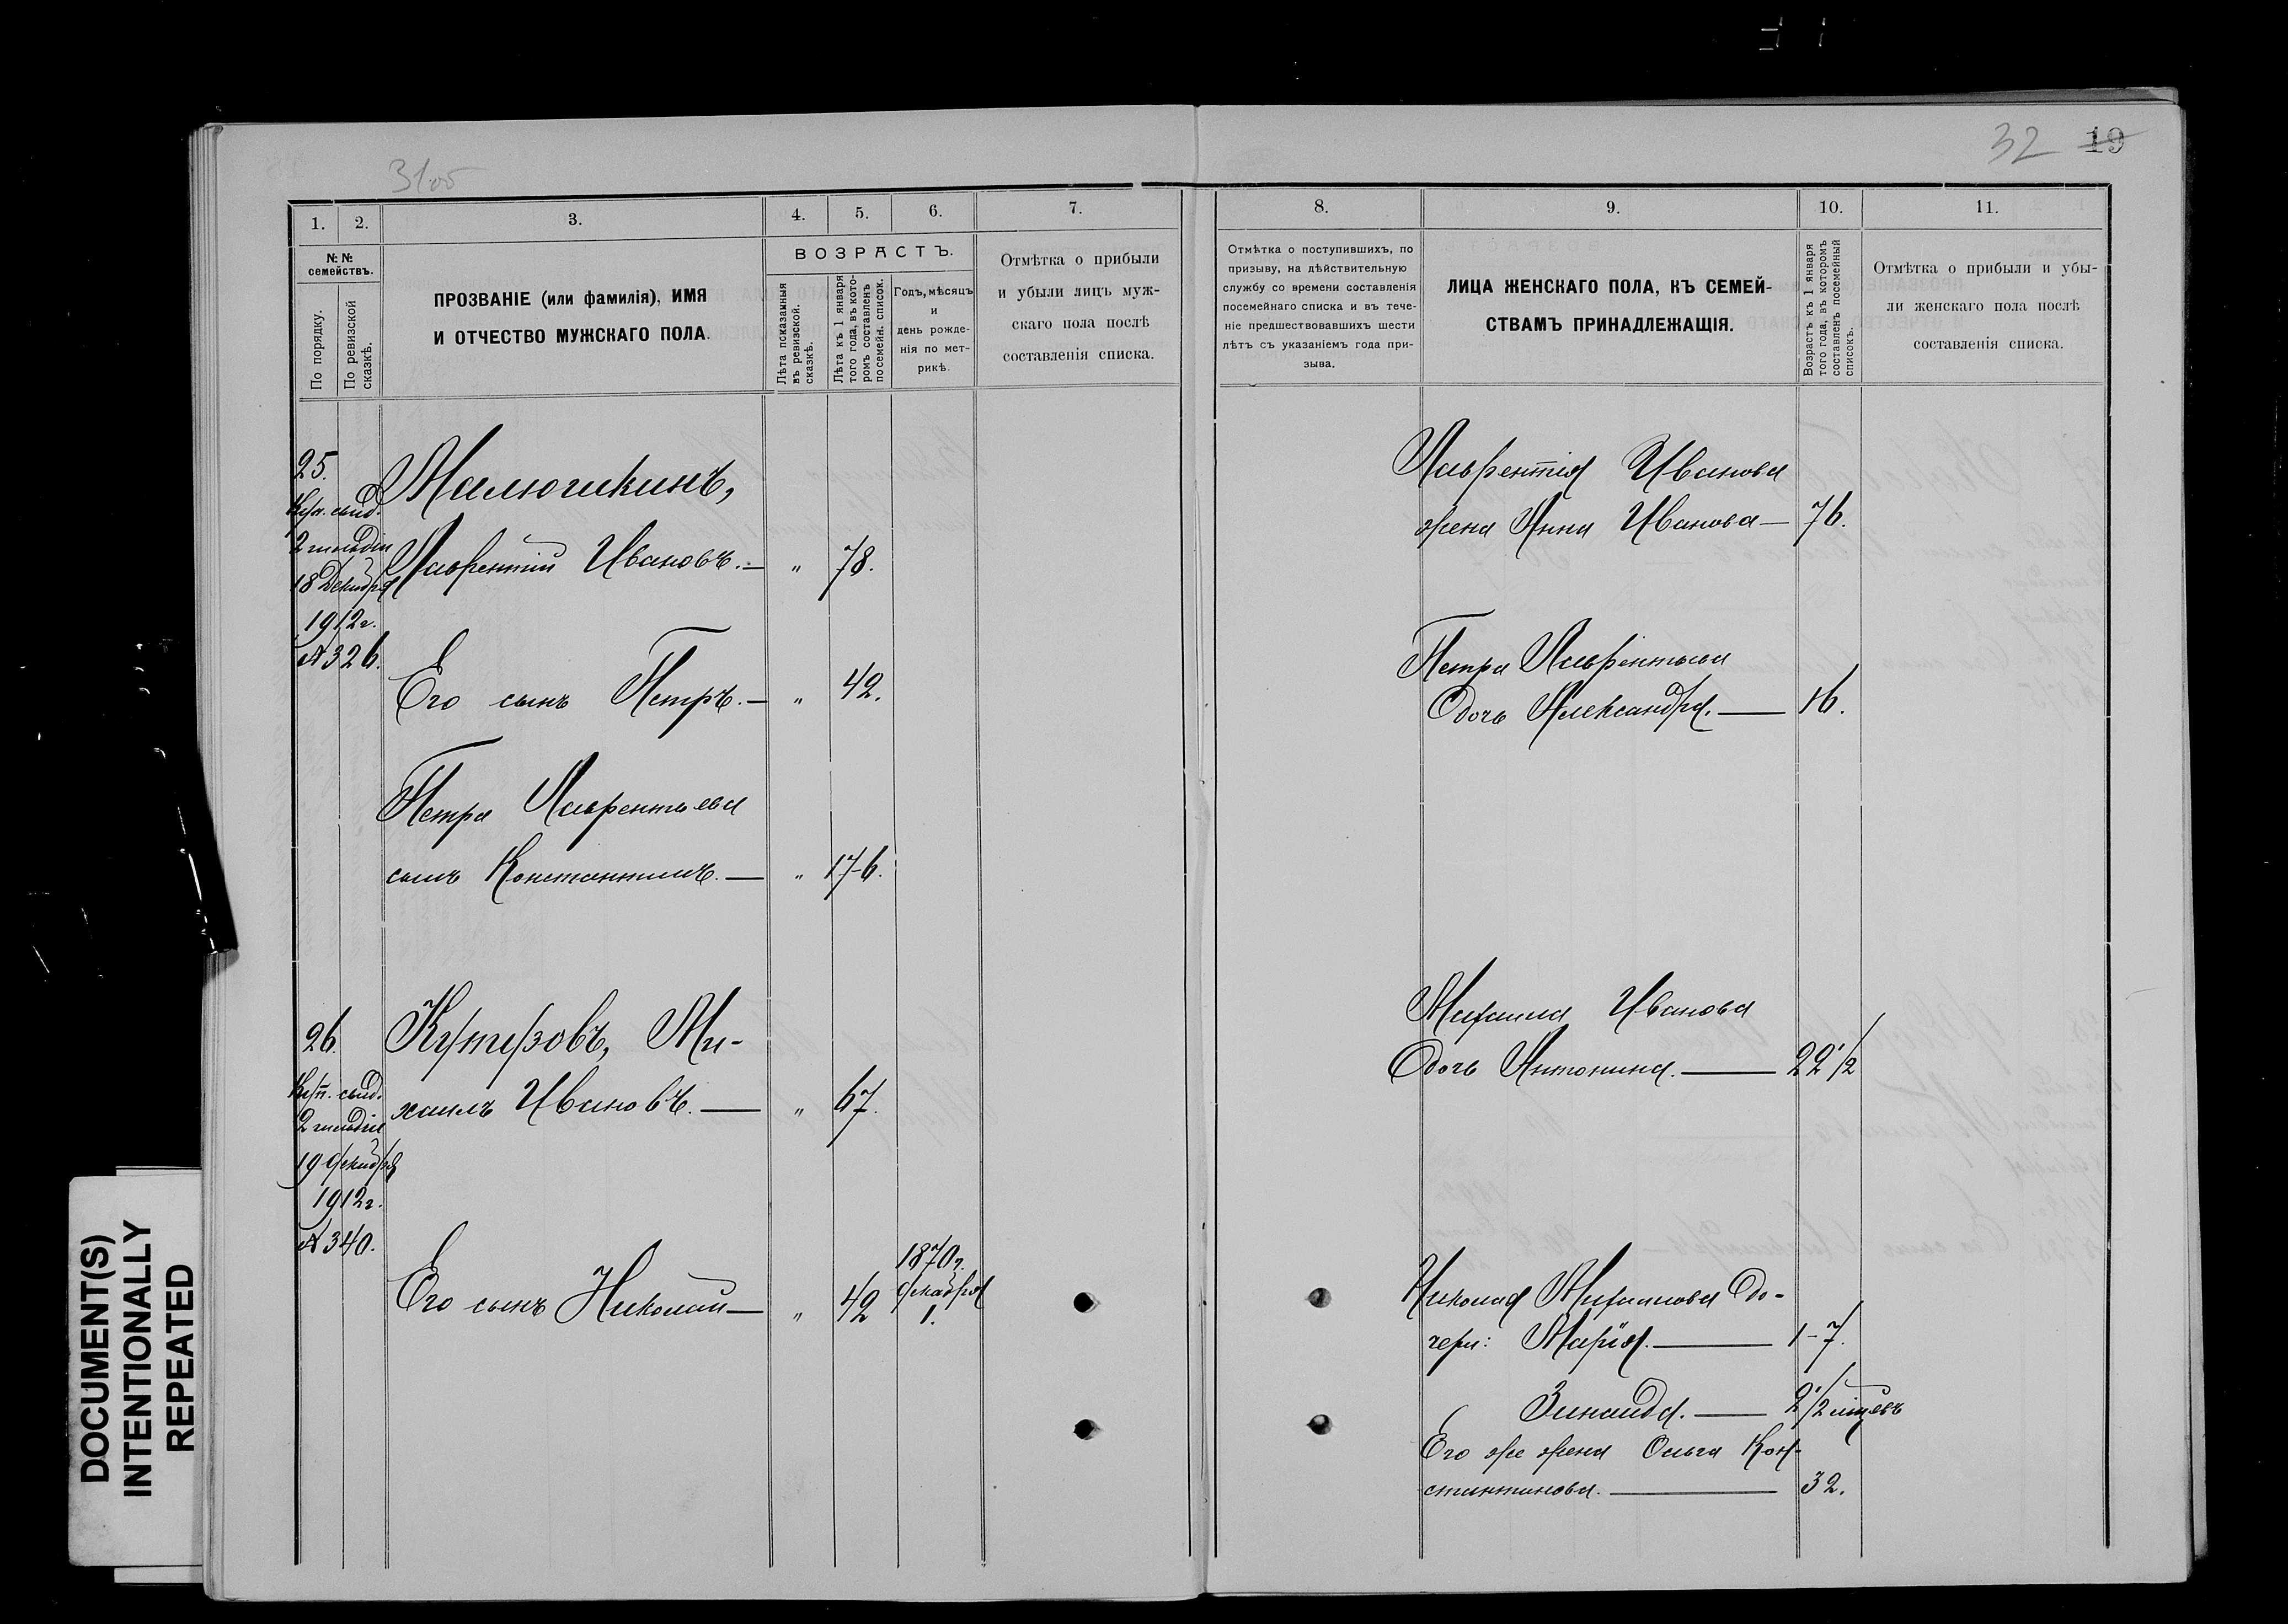 32 19
31об
1. 2. 3. 4. 5. 6. 7.
№№ семействъ.
По порядку.
По ревизской сказкѣ.
ПРОЗВАНІЕ (или фамилія), ИМЯ
И ОТЧЕСТВО МУЖСКАГО ПОЛА.
ВОЗРАСТЪ.
Лѣта показанныя
въ ревизской.
сказкѣ.
Лѣта къ 1 января
того года, въ кото-
ромъ составленъ
посемейн. список.
Годъ, мѣсяцъ
и
день рожде-
нія по мет-
рикѣ.
Отмѣтка о прибыли
и убыли лицъ муж-
скаго пола послѣ
составленія списка.
25.
Куп. свид.
2 гильдіи
18 Декабря
1912 г.
№ 326.
Малюшкинъ,
Лаврентій Ивановъ. — „ 78.
Его сынъ Петръ. — „ 42.
Петра Лаврентьева
сынъ Константинъ. — „ 17-6.
26.
Куп. свид.
2 гильдіи
19 декабря
1912 г.
№ 340.
Кутузовъ, Ми-
хаилъ Ивановъ. — „ 67.
Его сынъ Николай — „ 42
1870 г.
декабря
1.
8. 9. 10. 11.
Отмѣтка о поступившихъ, по
призыву, на дѣйствительную
службу со времени составленія
посемейнаго списка и въ тече-
ніе предшествовавшихъ шести
лѣтъ съ указаніемъ года при-
зыва.
ЛИЦА ЖЕНСКАГО ПОЛА, КЪ СЕМЕЙ-
СТВАМЪ ПРИНАДЛЕЖАЩІЯ.
Возрастъ къ 1 января
того года, въ которомъ
составленъ посемейный
списокъ.
Отмѣтка о прибыли и убы-
ли женскаго пола послѣ
составленія списка.
Лаврентія Иванова
жена Анна Иванова — 76.
Петра Лаврентьева
дочь Александра. — 16.
Михаила Иванова
дочь Антонина. — 22 1/2
Николая Михаилова до-
чери: Марія. — 1-7.
Зинаида. — 2 1/2 мѣсяцевъ
Его же жена Ольга Кон-
стантинова. — 32.
DOCUMENT(S)
INTENTIONALLY
REPEATED